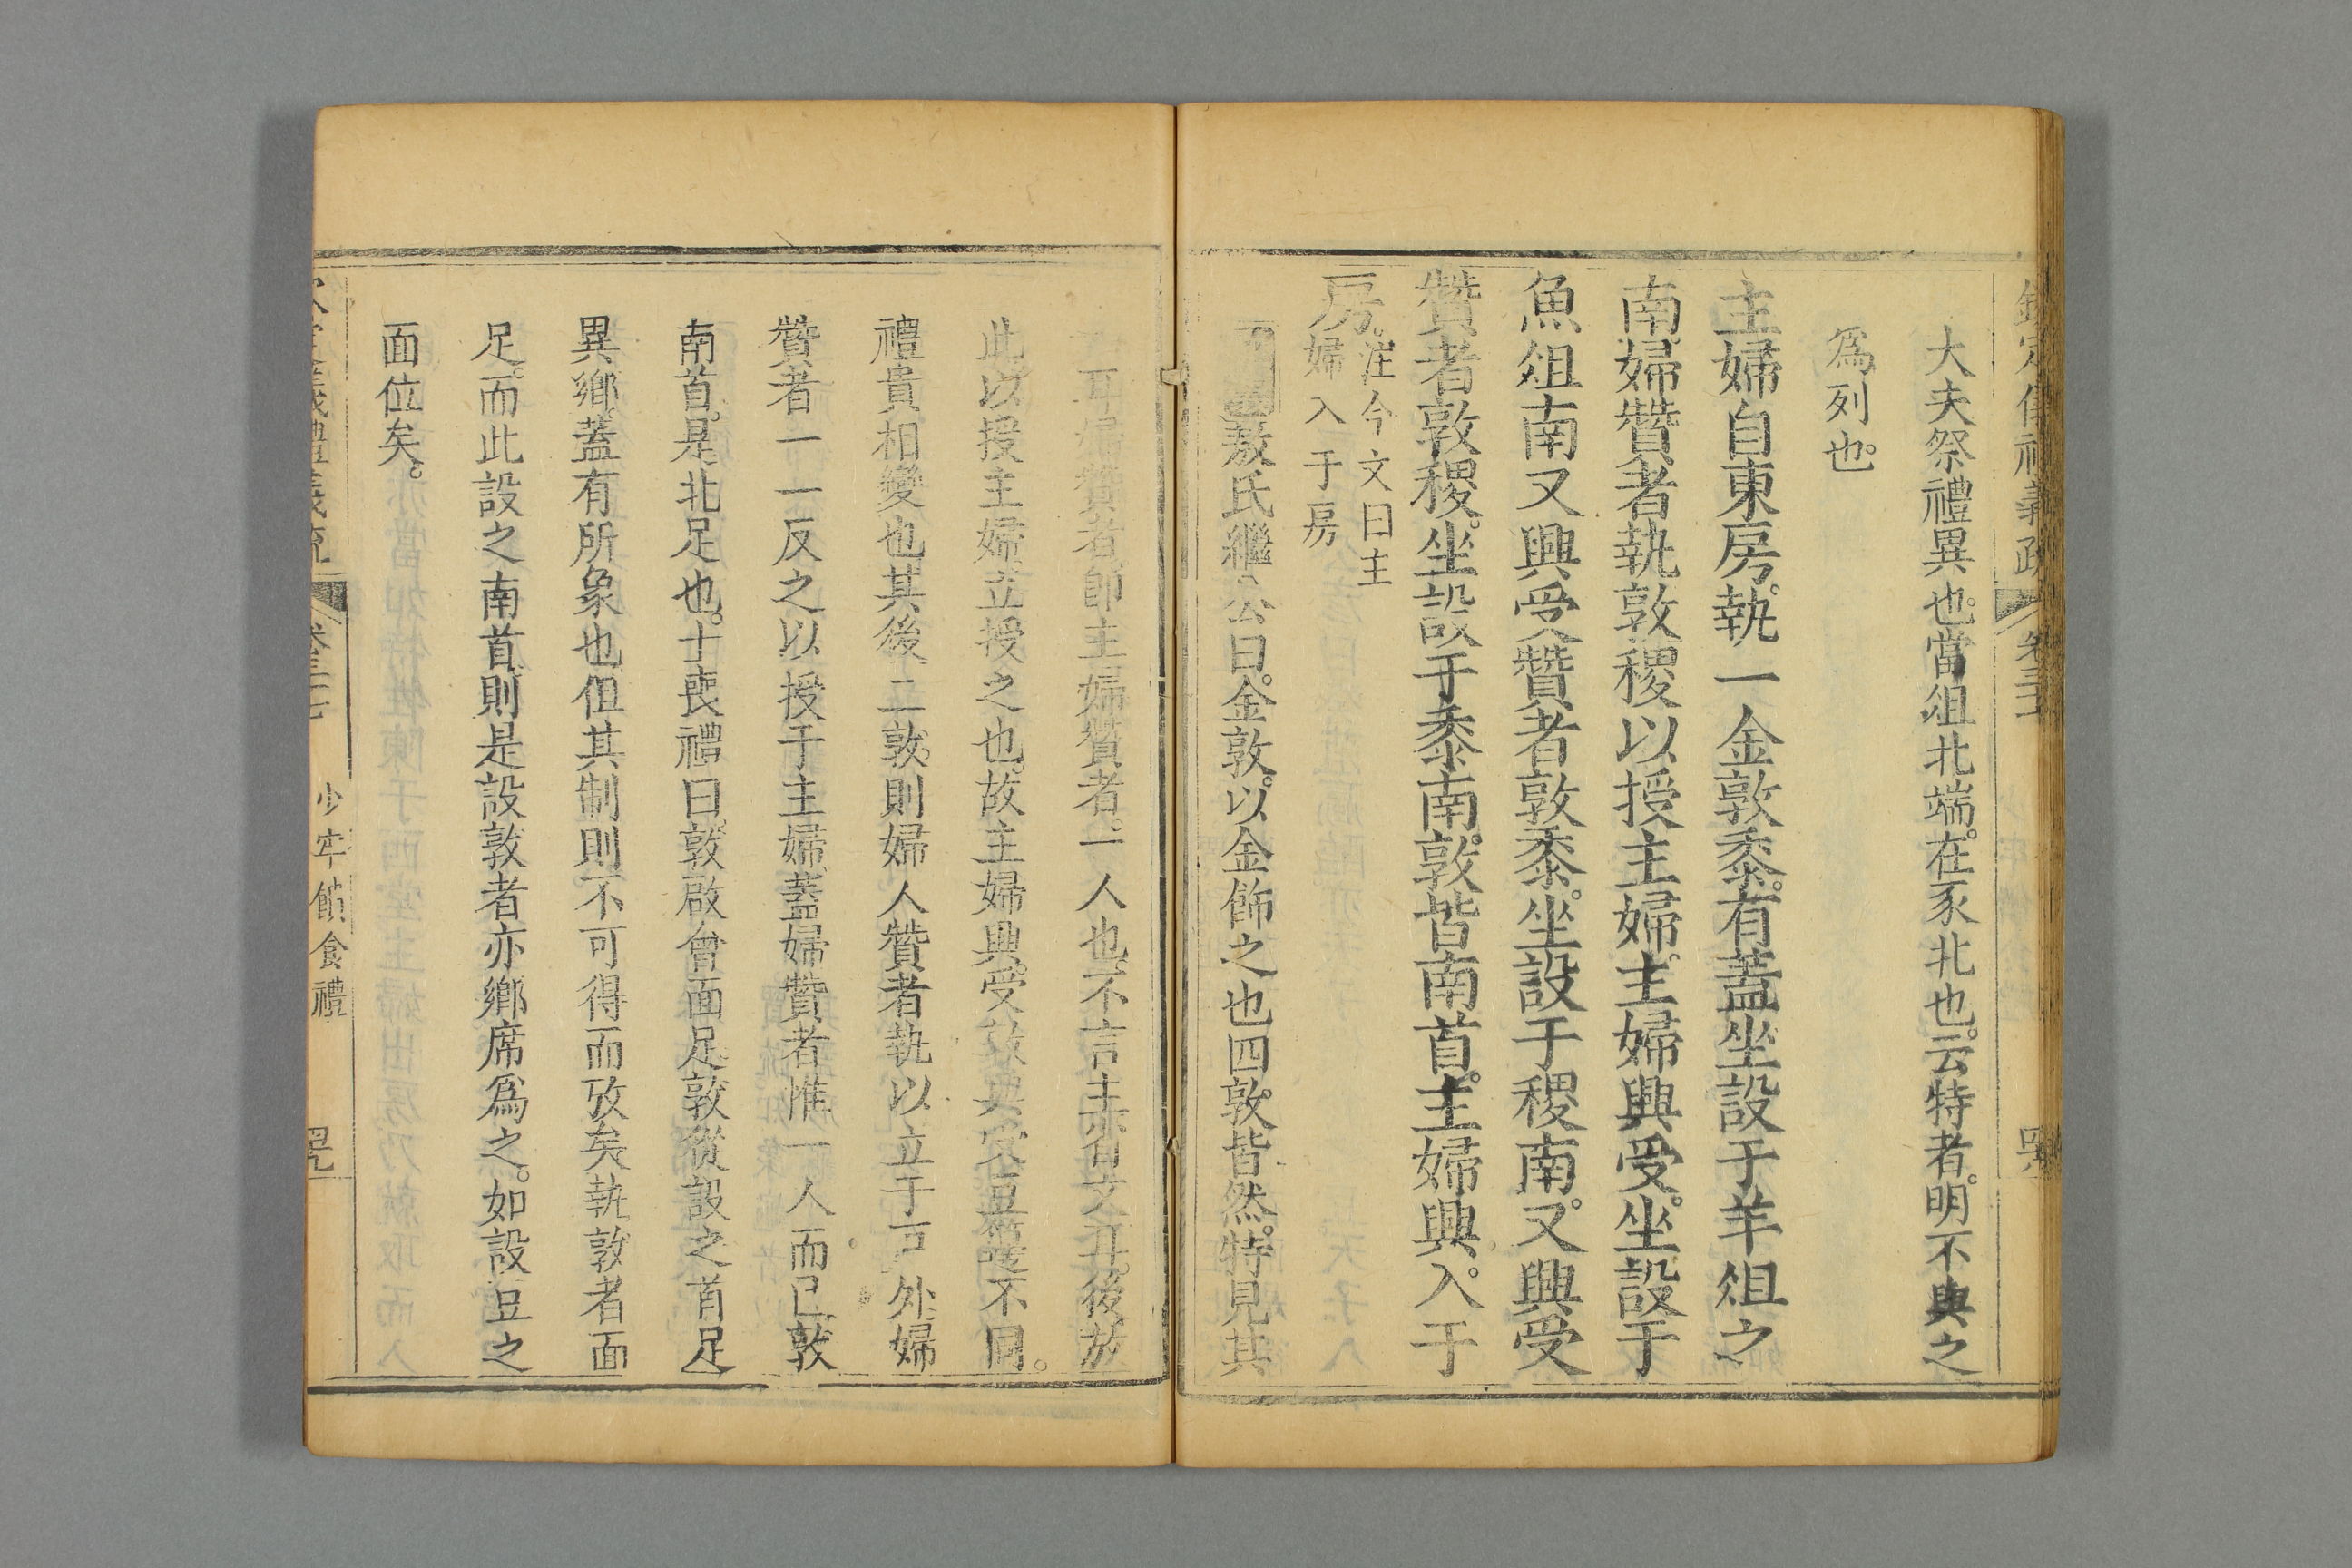 大夫祭禮異也。當俎北端。在豕北也。云特者。明不與之
爲列也。
主婦自東房。執一金敦黍。有蓋坐設于羊俎之
南。婦贊者執敦稷以授主婦。主婦興受。坐設于
魚俎南又興受贊者敦黍。坐設于稷南。又興受
贊者敦稷。坐設于黍南。敦皆南首。主婦興。入于
房。注今文曰主
婦入于房
敖氏繼公曰。金敦。以金飾之也四敦。皆然。特見其
耳婦贊者。卽主婦贊者。一人也。不言主者文耳。後放
此。以授主婦。立授之也。故主婦興。受敦興受豆籩不同。
禮貴相變也。其後二敦。則婦人贊者執以立于戶外。婦
贊者一一反之以授于主婦。蓋婦贊者惟一人而已敦
南首。是北足也。士喪禮曰。敦啟會面足。敦從設之首足
異鄉。蓋有所象也但其制則不可得而攷矣執敦者面
足。而此設之南首。則是設敦者亦鄉席爲之。如設豆之
面位矣。
卷三七
少牢饋食禮